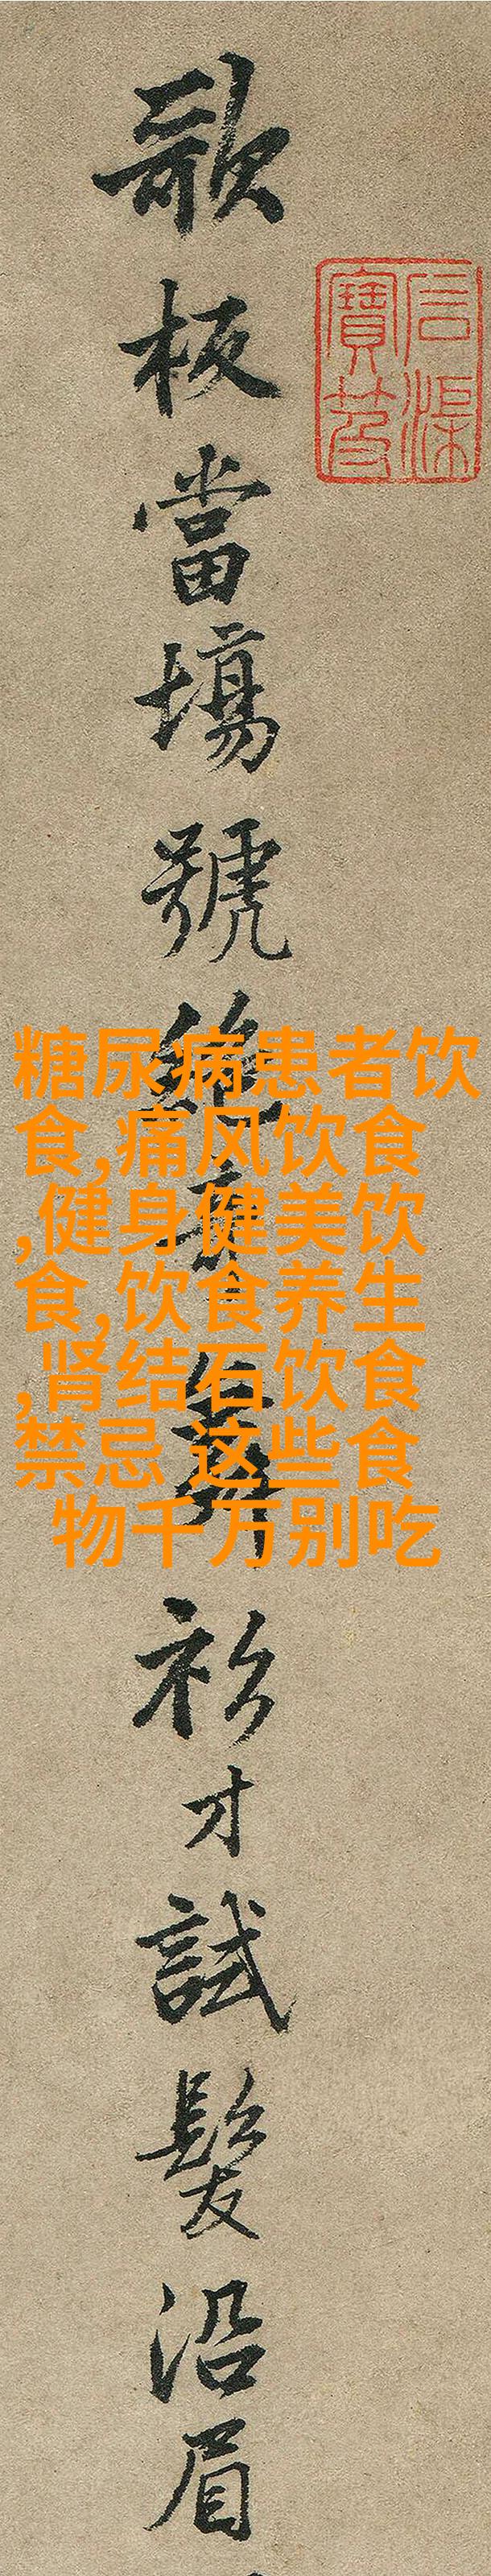 石渠
寶笈
歌板當場號絕奇舞衫才試髮沿眉
糖尿病患者饮
食,痛风饮食
,健身健美饮
食,饮食养生
,肾结石饮食
禁忌 这些食
物千万别吃